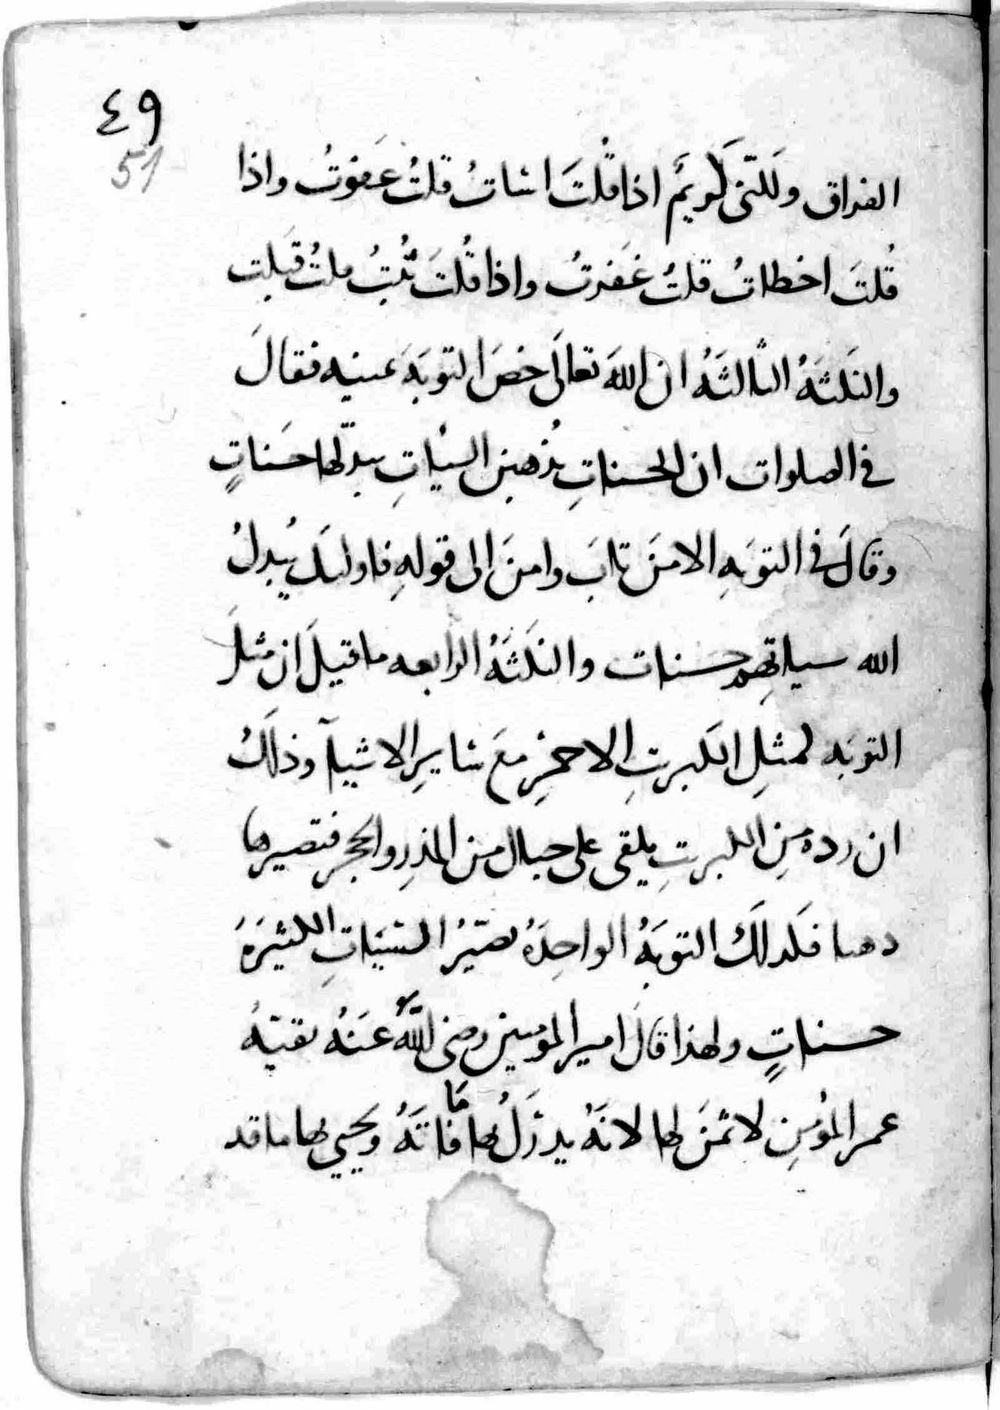 ٤٩
51
الفراق ولكنّى كريمٌ اذا قُلتَ اسَاتُ قلتُ عَفوَتُ واذا
قُلتَ اخطاتُ قلتُ غَفَرتُ واذا قُلتَ تُبتُ قلتُ قَبِلت
والنكتَهُ الثالثَهُ ان اللهَ تعالَى خصَ التوبَهَ عيينه فقالَ
فى الصلوات ان الحسناتِ يُذهبن السَئاتِ يبدّلها حَسَناتٍ
وقالَ فى التوبَهِ الا مَن تابَ وامنَ الى قولهِ فاوليك يُبدلُ
الله سياتِهم حسنات والنكتَهُ الرابعه ما قيلَ ان مثلَ
التوبَه كمثلِ الكبريتِ الاحمرِ معَ سَايرِ الاشيآ وذلكَ
ان ردهَ مِن الكبريتِ يلقى على جبال من المذرِ والحجرِ فتصيرها
دهبا فكدلكَ التوبَهُ الواحِدَهُ تصَيّرُ السَيّيَاتِ الكثيرَهَ
حسناتٍ ولهذا قالَ امير المومنين رضى اللهُ عَنهُ بقيّهُ
عمر المُؤمنِ لا ثمنَ لها لانَهُ يدركُ بها مَا فَاتَهُ ويحيى بها ما قد